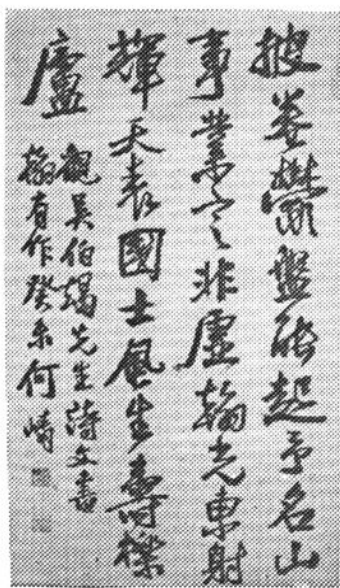 披卷鬱盤礴起予名山
事業定非虛翰光東射
輝天表國士風生壽櫟
廬
觀吳伯朅先生詩文書
翰有作癸未何崝